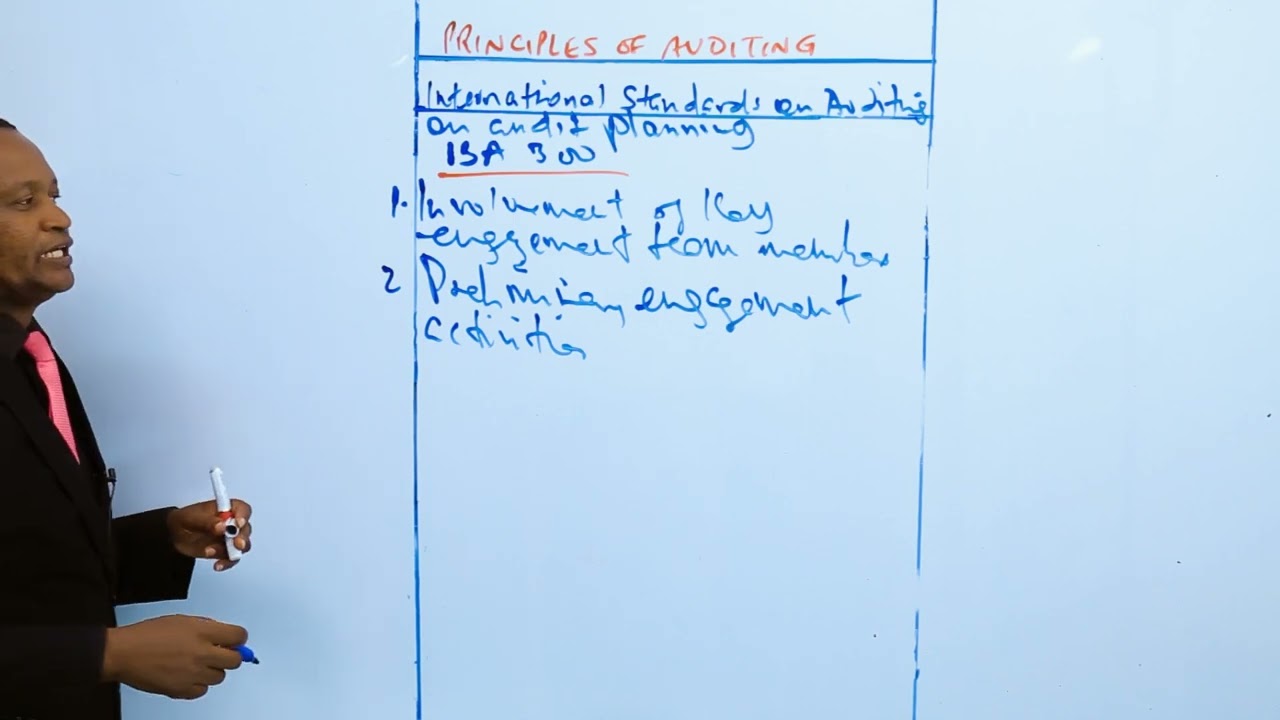 PRINCIPLES OF AUDITING
International Standards on Auditing
on audit planning
ISA 300
1. Involvement of Key
engagement team members
2 Preliminary engagement
activities